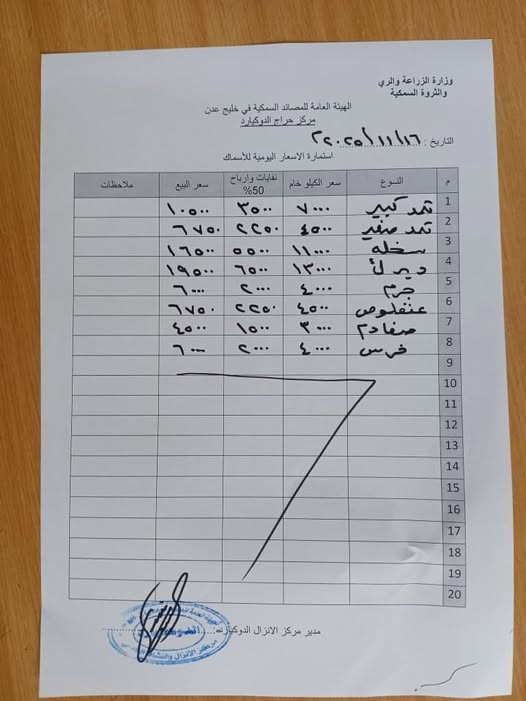 وزارة الزراعة والري
والثروة السمكية
الهيئة العامة للمصائد السمكية في خليج عدن
مركز حراج الدوكيارد
التاريخ : ٢٠٢٥/١١/١٦
استمارة الاسعار اليومية للأسماك
م النوع سعر الكيلو خام نفايات وارباح 50% سعر البيع ملاحظات
1 ثمد كبير ٧٠٠٠ ٣٥٠٠ ١٠٥٠٠
2 ثمد صغير ٤٥٠٠ ٢٢٥٠ ٦٧٥٠
3 سخله ١١٠٠٠ ٥٥٠٠ ١٦٥٠٠
4 ديرك ١٣٠٠٠ ٦٥٠٠ ١٩٥٠٠
5 جرم ٤٠٠٠ ٢٠٠٠ ٦٠٠٠
6 عنفلوص ٤٥٠٠ ٢٢٥٠ ٦٧٥٠
7 صفادم ٣٠٠٠ ١٥٠٠ ٤٥٠٠
8 فرس ٤٠٠٠ ٢٠٠٠ ٦٠٠٠
9
10
11
12
13
14
15
16
17
18
19
20
مدير مركز الانزال الدوكيارد